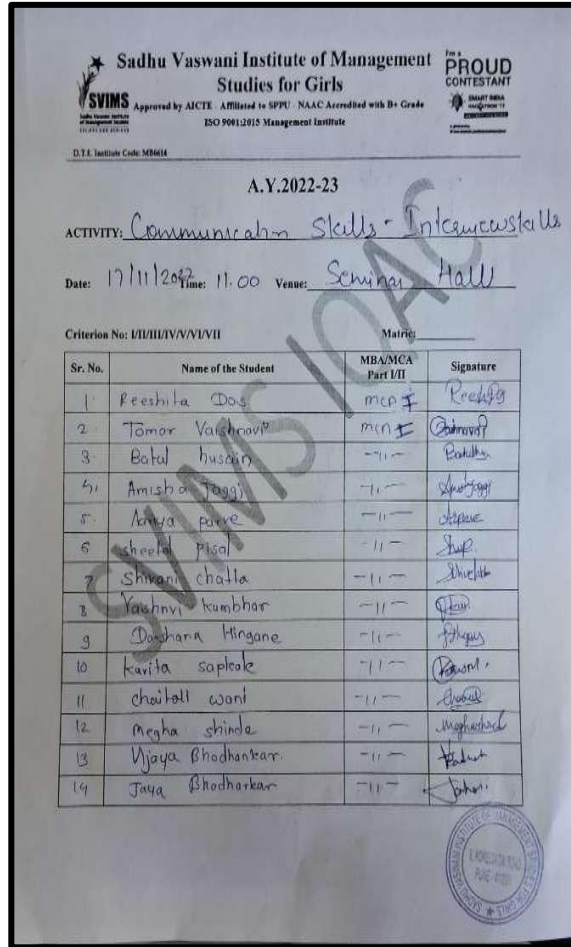 Sadhu Vaswani Institute of Management
Studies for Girls
SVIMS
Approved by AICTE · Affiliated to SPPU · NAAC Accredited with B+ Grade
ISO 9001:2015 Management Institute
I'm a
PROUD
CONTESTANT
SMART INDIA
D.T.E. Institute Code: MB6614
A.Y.2022-23
ACTIVITY: Communicatn Skills - Interviewskills
Date: 17/11/2022 Time: 11.00 Venue: Seminar Hall
Criterion No: I/II/III/IV/V/VI/VII Matric:
Sr. No. Name of the Student MBA/MCA Part I/II Signature
1 Reeshita Das MCA I
2 Tomar Vaishnavi MCA I
3 Batul husain -11-
4 Amisha Jaggi -11-
5. Aarya parve -11-
6 sheetal pisal -11-
7 Shivani chatla -11-
8 Vaishnvi kumbhar -11-
9 Darshana Hingane -11-
10 kavita sapkale -11-
11 chaitali wani -11-
12 megha shinde -11-
13 Vijaya Bhodhankar. -11-
14 Jaya Bhodharkar -11-
SVIMS IQAC
SADHU VASWANI INSTITUTE OF MANAGEMENT STUDIES FOR GIRLS